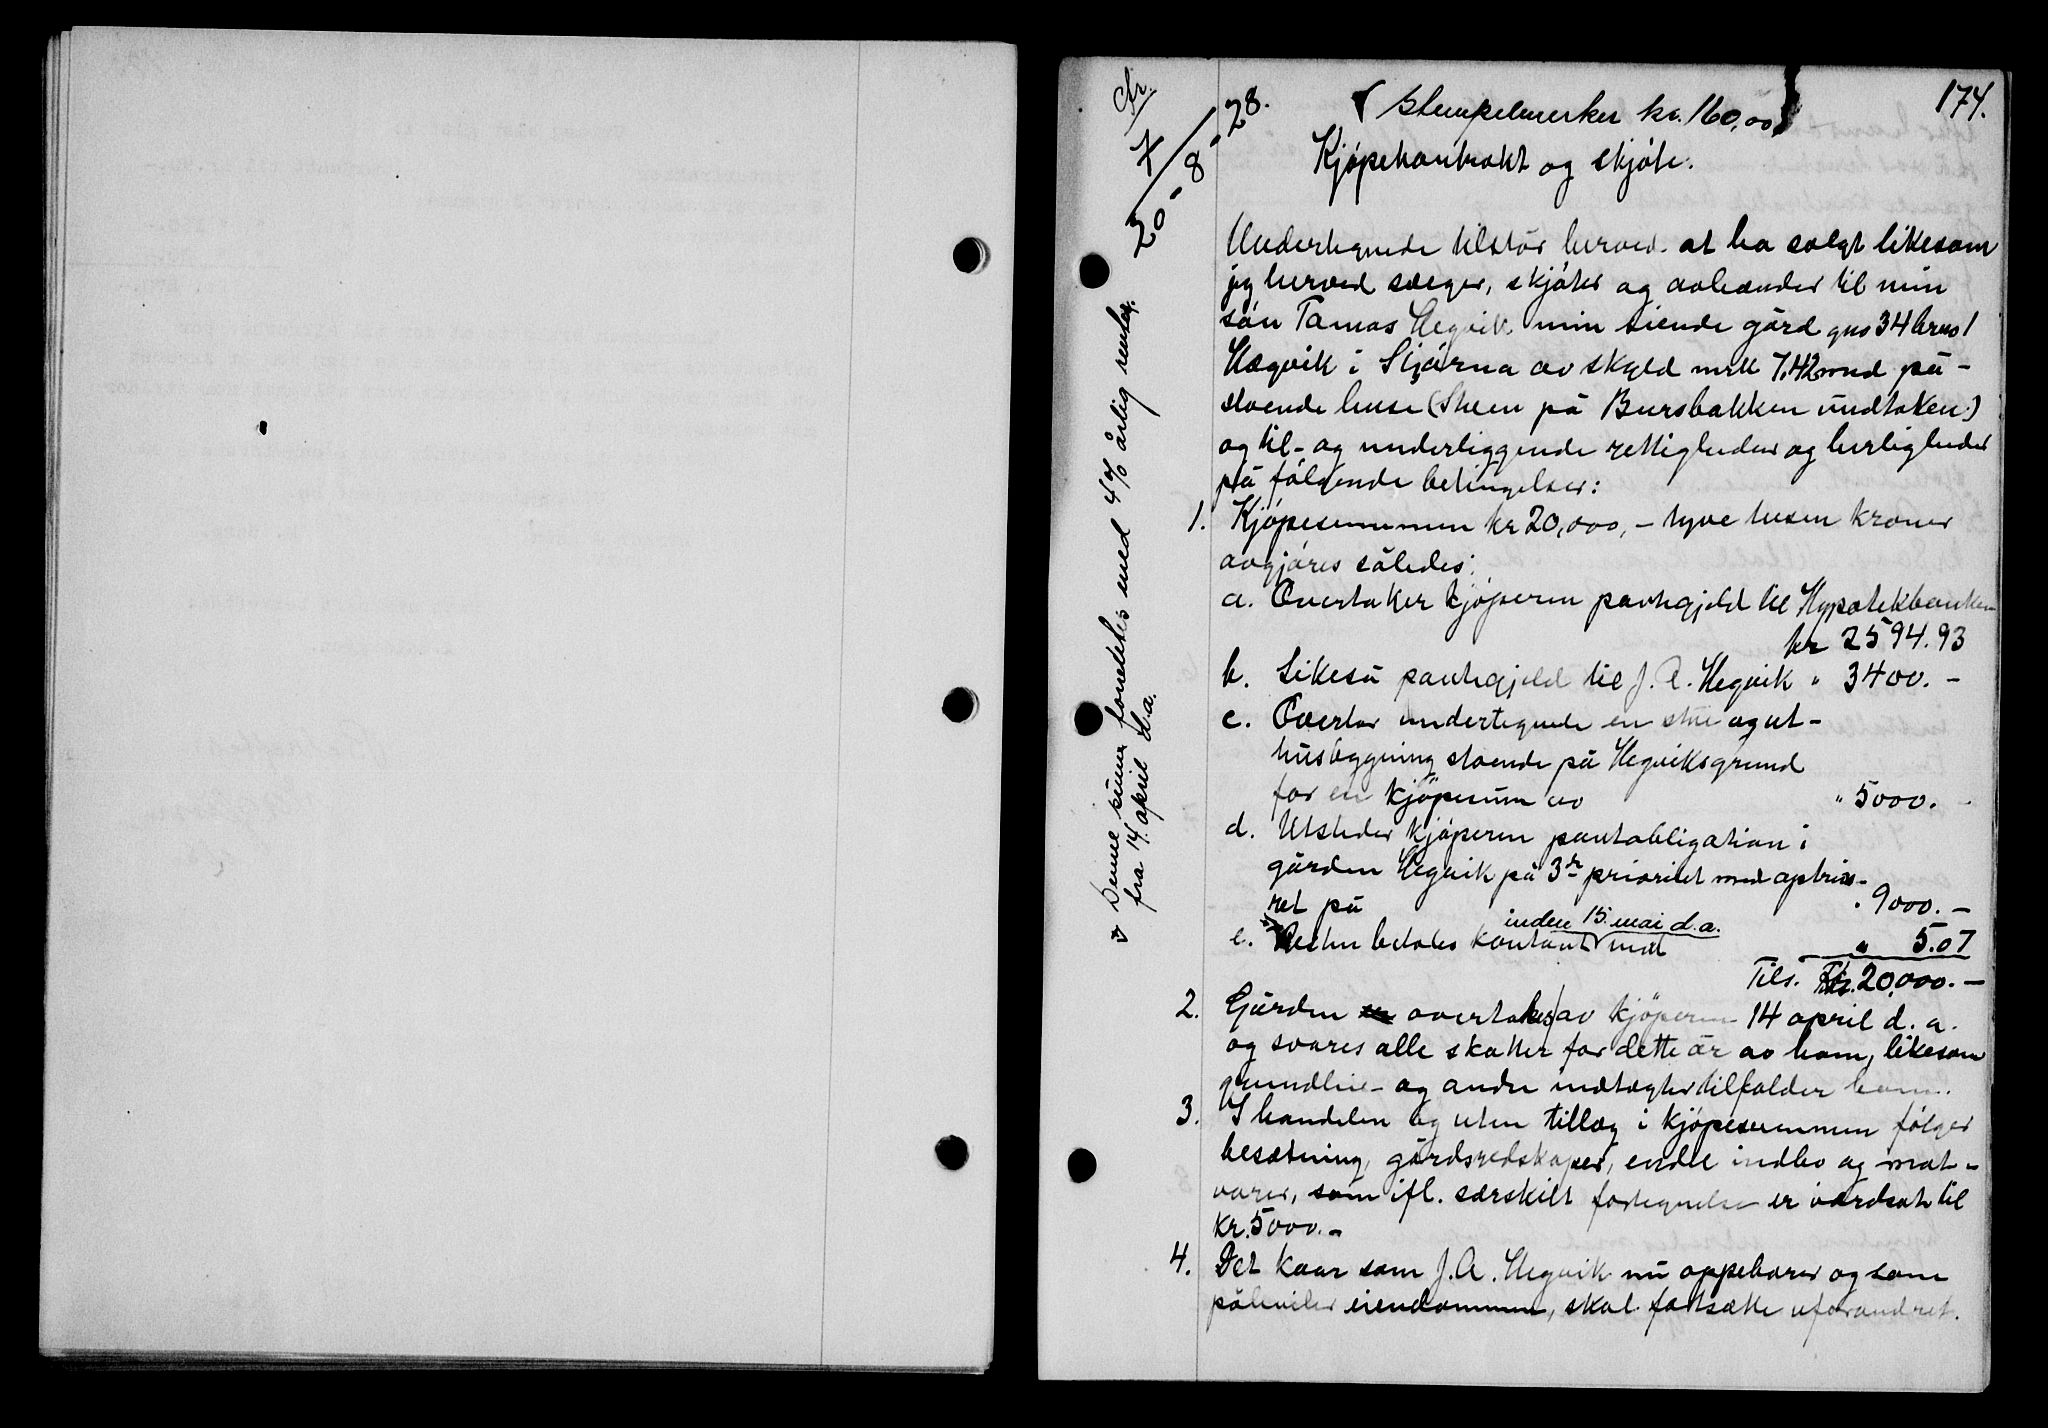 174.
(Stempelmerker kr. 160,00)
Kjøpekontrakt og skjøte.
7/20-8-28.
Undertegnede tilstår herved at ha solgt likesom
jeg herved sælger, skjøter og avhænder til min
søn Tomas Hegvik min eiende gård gno 34 brno 1
Hægvik i Stjørna av skyld mrk 7,42 med på-
stående huse (Stuen på Bursbakken undtaken)
og til- og underliggende rettigheder og herligheder
på følgende betingelser:
1. Kjøpesummen kr 20,000,- tyve tusen kroner
avgjøres således:
a. Overtaker kjøperen pantegjeld til Hypotekbanken
kr 2594.93
b. Likeså pantegjeld til J. A. Hegvik " 3400.-
c. Overtar undertegnede en stue og ut-
husbygning stående på Hegviksgrund
for en kjøpesum av " 5000.-
d. Utsteder kjøperen pantobligation i
gården Hegvik på 3de prioritet med optrin-
ret på " 9000.-
inden 15. mai d.a.
e. Resten betales kontant med " 5.07
Tils. Kr. 20,000.-
2. Gården overtakes av kjøperen 14 april d. a.
og svares alle skatter for dette år av ham, likesom
grundleie- og andre indtægter tilfalder ham.
3. I handelen og uten tillæg i kjøpesummen følger
besætning, gårdsredskaper, endel indbo og mat-
varer, som ifl. særskilt fortegnelse er værdsat til
kr. 5000.-
4. Det kaar som J. A. Hegvik nu oppebærer og som
påhviler eiendommen, skal fortsætte uforandret.
Denne summen forrentes med 4% årlig rente
fra 14. april d.a.